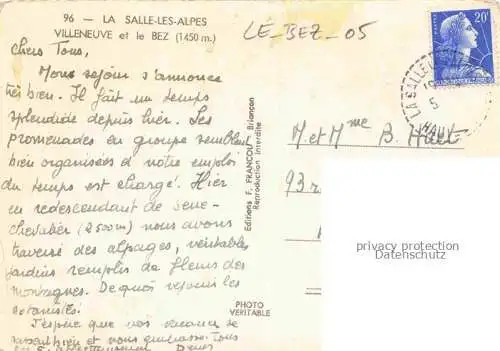 96 — LA SALLE-LES-ALPES
VILLENEUVE et le BEZ (1450 m.)
LE-BEZ-05
20F
LA SALLE
5
HAU
Chers Tous,
Notre séjour s'annonce
très bien. Il fait un temps
splendide depuis hier. Les
promenades en groupe semblent
bien organisées et notre emploi
du temps est chargé. Hier
en redescendant de Serre-
chevalier (2500m) nous avons
traversé des alpages, véritables
jardins remplis de fleurs des
montagnes. De quoi réjouir les
botanistes!
J'espère que vos vacances se
passent bien et vous embrasse Tous
affectueusement
M. et Mme B.
93 r
Editions F. FRANCOU Briançon
Reproduction interdite
PHOTO
VERITABLE
privacy protection
Datenschutz